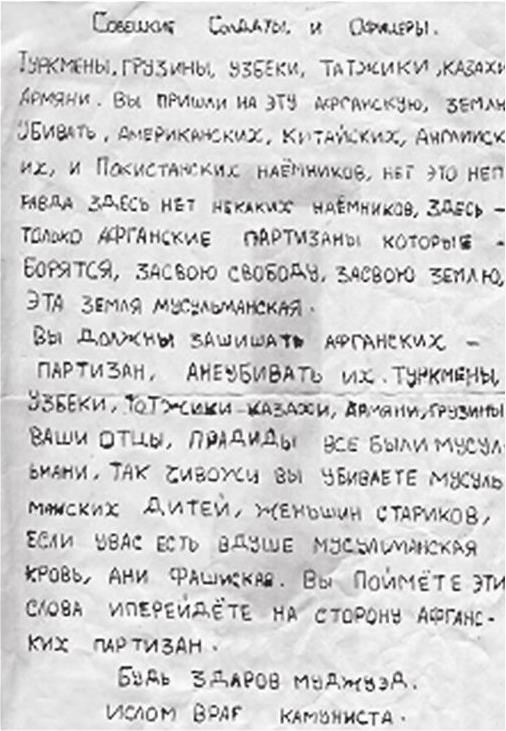 Совешкие Солдаты, и Офицеры.
Туркмены, грузины, узбеки, татжики, казахи
армяни. Вы пришли на эту афганскую, землю
убивать, американских, китайских, английск
их, и Покистанских наёмников, нет это неп
равда здесь нет некаких наёмников, здесь –
только афганские партизаны которые –
борятся, засвою свободу, засвою землю,
эта земля мусульманская.
Вы должны зашишать афганских –
партизан, анеубивать их. Туркмены,
узбеки, тотжики казахи, армяни, грузины
ваши отцы, прадиды все были мусул-
ьмани, так чивожи вы убиваете мусуль
манских дитей, женьшин стариков,
если увас есть вдуше мусульманская
кровь, ани фашиская. Вы поймёте эти
слова иперейдёте на сторону афганс-
ких партизан.
Будь здаров муджуэд.
Ислом враг камуниста.